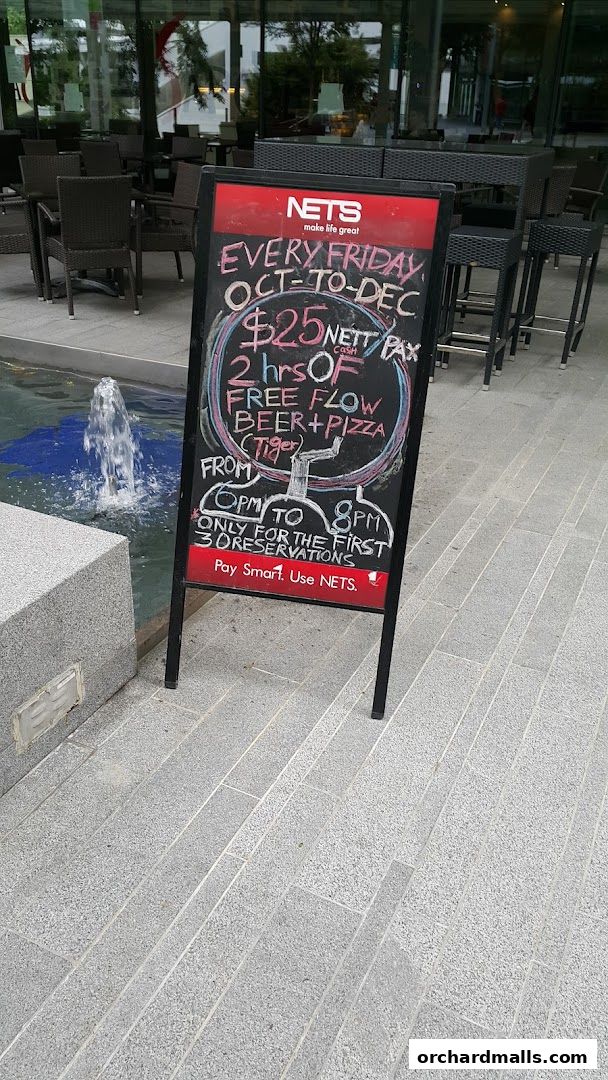 NETS
make life great
EVERY FRIDAY
OCT-TO-DEC
$25 NETT/PAX
CASH
2 hrs OF
FREE FLOW
BEER+PIZZA
(Tiger)
FROM
6PM TO 8PM
*ONLY FOR THE FIRST
30 RESERVATIONS
Pay Smart. Use NETS.
orchardmalls.com